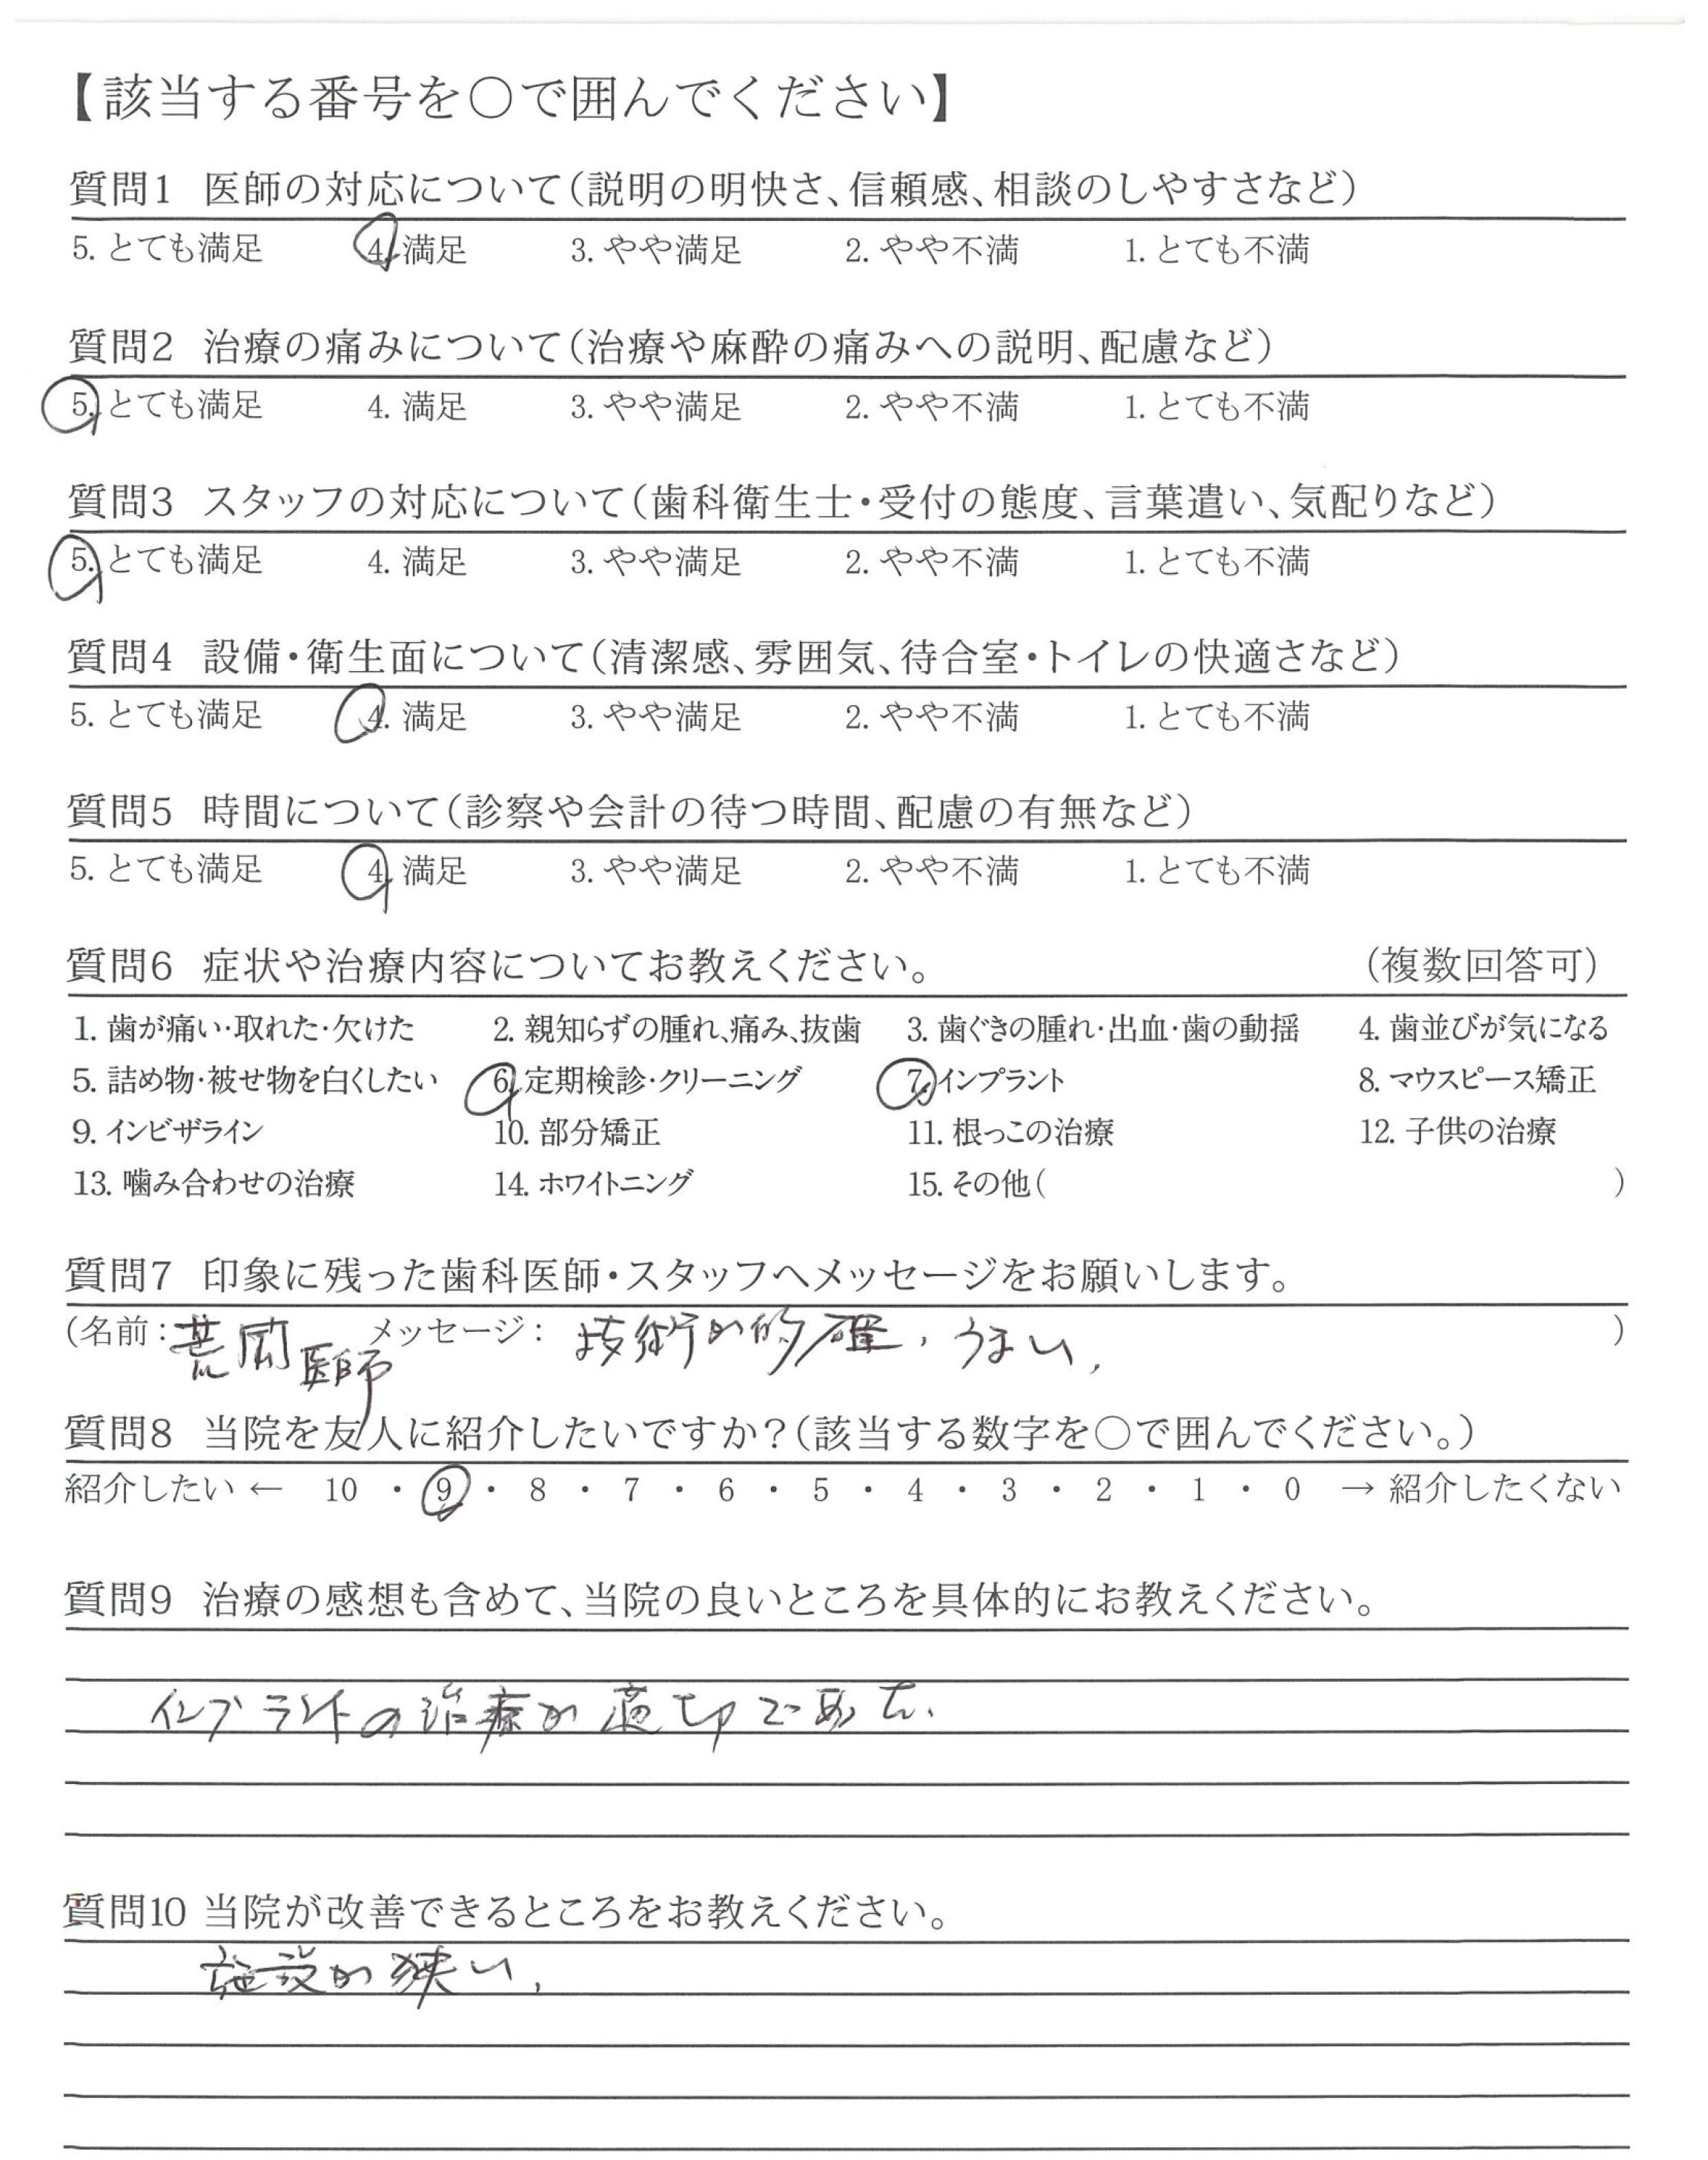 【該当する番号を○で囲んでください】
質問1 医師の対応について(説明の明快さ、信頼感、相談のしやすさなど)
5. とても満足 4. 満足 3. やや満足 2. やや不満 1. とても不満
質問2 治療の痛みについて(治療や麻酔の痛みへの説明、配慮など)
5. とても満足 4. 満足 3. やや満足 2. やや不満 1. とても不満
質問3 スタッフの対応について(歯科衛生士・受付の態度、言葉遣い、気配りなど)
5. とても満足 4. 満足 3. やや満足 2. やや不満 1. とても不満
質問4 設備・衛生面について(清潔感、雰囲気、待合室・トイレの快適さなど)
5. とても満足 4. 満足 3. やや満足 2. やや不満 1. とても不満
質問5 時間について(診察や会計の待つ時間、配慮の有無など)
5. とても満足 4. 満足 3. やや満足 2. やや不満 1. とても不満
質問6 症状や治療内容についてお教えください。 (複数回答可)
1. 歯が痛い・取れた・欠けた 2. 親知らずの腫れ、痛み、抜歯 3. 歯ぐきの腫れ・出血・歯の動揺 4. 歯並びが気になる
5. 詰め物・被せ物を白くしたい 6. 定期検診・クリーニング 7. インプラント 8. マウスピース矯正
9. インビザライン 10. 部分矯正 11. 根っこの治療 12. 子供の治療
13. 噛み合わせの治療 14. ホワイトニング 15. その他( )
質問7 印象に残った歯科医師・スタッフへメッセージをお願いします。
(名前：荒岡医師 メッセージ： 技術が的確、うまい、 )
質問8 当院を友人に紹介したいですか？(該当する数字を○で囲んでください。)
紹介したい ← 10 ・ 9 ・ 8 ・ 7 ・ 6 ・ 5 ・ 4 ・ 3 ・ 2 ・ 1 ・ 0 → 紹介したくない
質問9 治療の感想も含めて、当院の良いところを具体的にお教えください。
インプラントの治療が適切であった、
質問10 当院が改善できるところをお教えください。
施設が狭い、